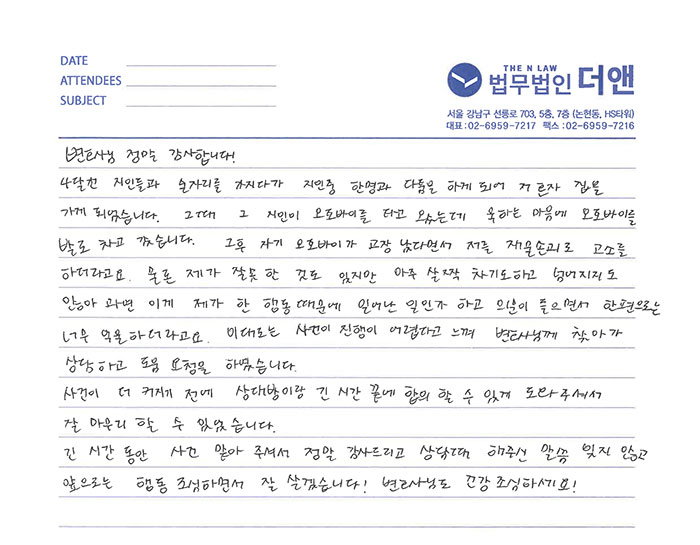 DATE
ATTENDEES
SUBJECT
THE N LAW
법무법인 더앤
서울 강남구 선릉로 703, 5층, 7층 (논현동, HS타워)
대표:02-6959-7217 팩스:02-6959-7216
변호사님 정말 감사합니다!
4달전 지인들과 술자리를 가지다가 지인중 한명과 다툼을 하게 되어 저 혼자 집을
가게 되었습니다. 그때 그 지인이 오토바이를 타고 왔는데 욱하는 마음에 오토바이를
발로 차고 갔습니다. 그후 자기 오토바이가 고장 났다면서 저를 재물손괴로 고소를
하더라고요. 물론 제가 잘못 한 것도 있지만 아주 살짝 차기도하고 넘어지지도
않아 과연 이게 제가 한 행동때문에 일어난 일인가 하고 의문이 들으면서 한편으로는
너무 억울하더라고요. 이대로는 사건이 진행이 어렵다고 느껴 변호사님께 찾아가
상담하고 도움 요청을 하였습니다.
사건이 더 커지기 전에 상대방이랑 긴 시간 끝에 합의 할 수 있게 도와주셔서
잘 마무리 할 수 있었습니다.
긴 시간 동안 사건 맡아 주셔서 정말 감사드리고 상담때 해주신 말씀 잊지 않고
앞으로는 행동 조심하면서 잘 살겠습니다! 변호사님도 건강 조심하세요!